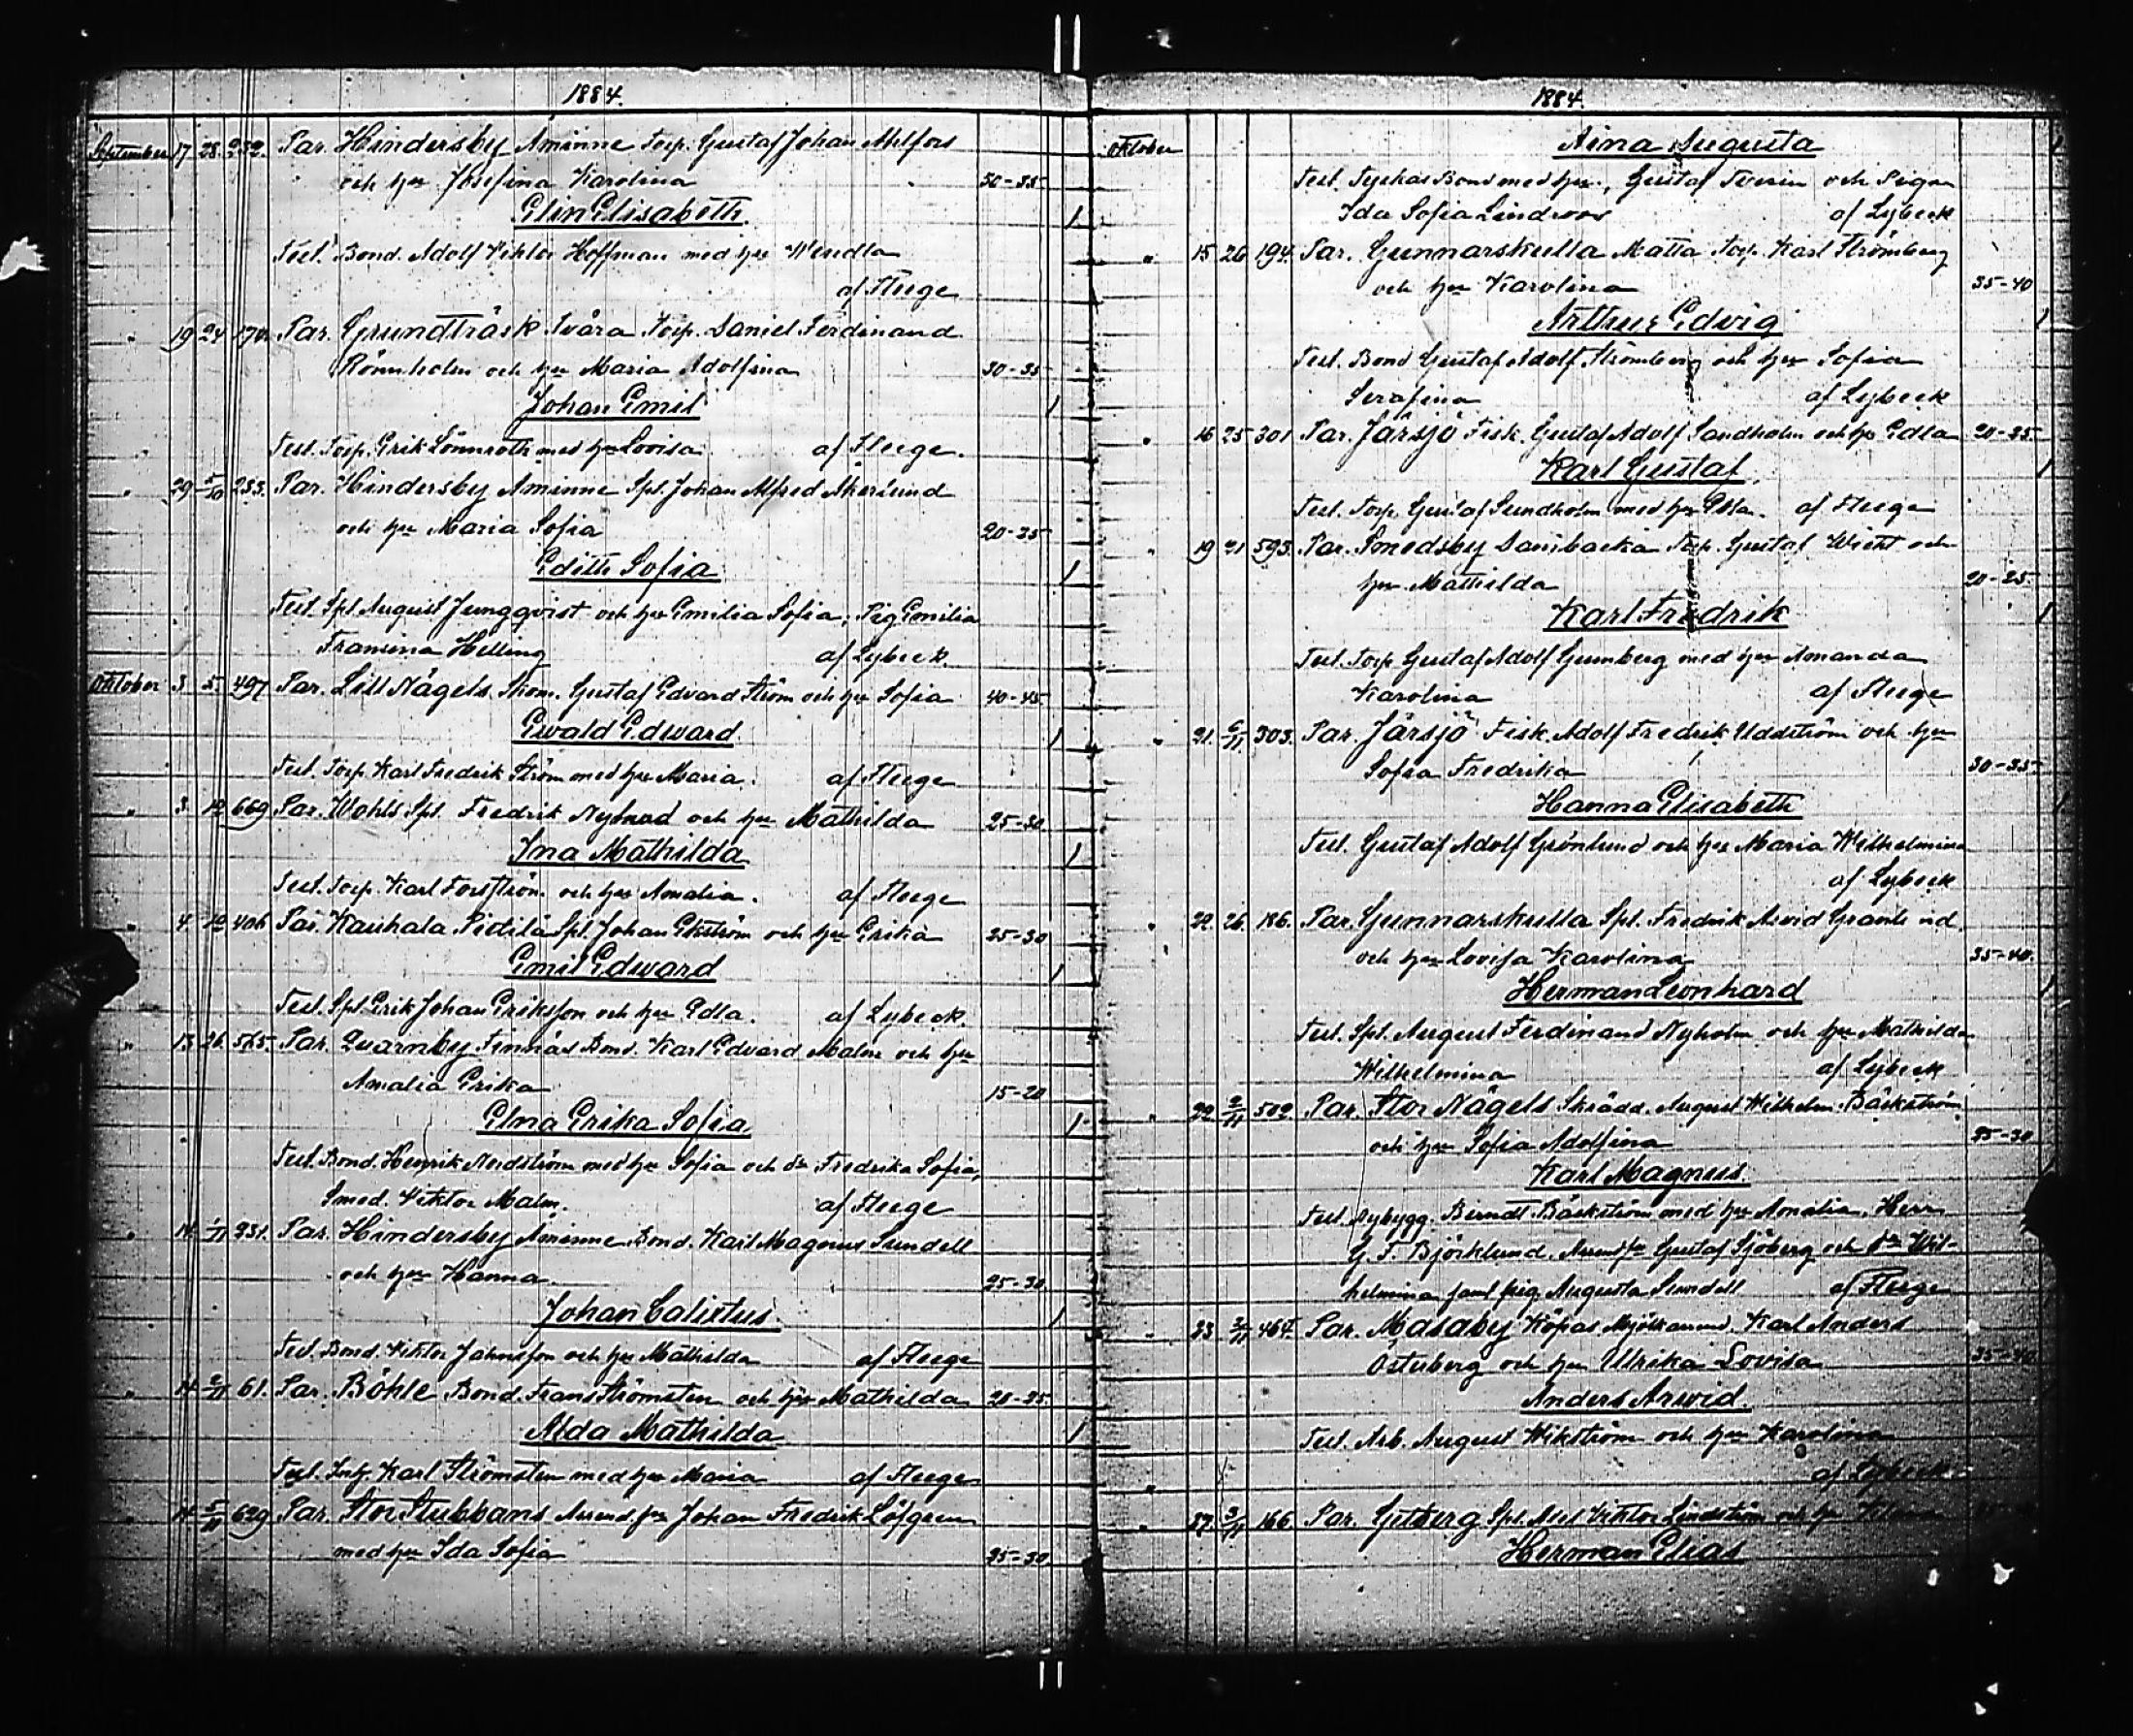 1884.
September 17 28 232. Par. Hindersby Aminne Torp. Gustaf Johan Melfors
och hu Josefina Karolina 30-35
Elin Elisabeth 1
Test. Bond. Adolf Viktor Hoffman med hu Wendla
af Fleege
" 19 24 170. Par. Grundträsk Tvåra Torp. Daniel Ferdinand
Rönnholm och hu Maria Adolfina 30-35
Johan Emil 1
Test. Torp. Erik Lönnroth med hu Lovisa. af Fleege.
" 29 5/10 233. Par. Hindersby Aminne Spl. Johan Alfred Åkerlund
och hu Maria Sofia 20-25
Edith Sofia 1
Test. Spl. August Jungqvist och hu Emilia Sofia, Pig. Emilia
Fransina Helling af Lybeck
Oktober 3 5 497 Par. Lill Nägels Skom. Gustaf Edvard Ström och hu Sofia 40-45
Ewald Edward 1
Test. Torp. Karl Fredrik Ström med hu Maria. af Fleege
" 3 12 669 Par. Wohls Spl. Fredrik Nylund och hu Mathilda 25-30
Ina Mathilda 1
Test. Torp. Karl Forsström och hu Amalia. af Fleege
" 4 12 406 Par. Kauhala Pietilä Spl. Johan Ekström och hu Erika 25-30
Emil Edward 1
Test. Spl. Erik Johan Eriksson och hu Edla. af Lybeck.
" 13 26 565. Par. Quarnby Finnäs Bond. Karl Edvard Malm och hu
Amalia Erika 15-20
Elna Erika Sofia 1
Test. Bond. Henrik Nordström med hu Sofia och dr Fredrika Sofia,
Smed. Viktor Malm. af Fleege
" 14 1/11 231. Par. Hindersby Aminne Bond. Karl Magnus Sundell
och hu Hanna 25-30.
Johan Calixtus 1
Test. Bond. Viktor Johansson och hu Mathilda af Fleege
" 14 2/11 61. Par. Böhle Bond. Frans Strömsten och hu Mathilda 20-25
Alda Mathilda 1
Test. Karl Strömsten med hu Maria af Fleege
" 14 5/11 629 Par. Stor Stubbans Arrend. Johan Fredrik Löfgren
med hu Ida Sofia 25-30
1884.
Oktober Aina Augusta
Test. Bond med hu, Gustaf och Pigan
Ida Sofia Lindroos af Lybeck
" 15 26 194. Par. Gunnarskulla Matta Torp. Karl Strömberg
och hu Karolina 35-40
Arthur Edvig 1
Test. Bond Gustaf Adolf Strömberg och hu Sofia
Serafina af Lybeck
" 16 25 301 Par. Järsjö Fisk. Gustaf Adolf Sandholm och hu Edla 20-25.
Karl Gustaf 1
Test. Torp. Gustaf Sundholm med hu Edla. af Fleege
" 19 21 593. Par. Smedsby Dansbacka Torp. Gustaf Wicht och
hu Mathilda 20-25
Karl Fredrik 1
Test. Torp. Gustaf Adolf Gumberg med hu Amanda
Karolina af Fleege
" 21. 6/11 303. Par. Järsjö Fisk. Adolf Fredrik Uddström och hu
Sofia Fredrika 30-35
Hanna Elisabeth 1
Test. Gustaf Adolf Grönlund och hu Maria Wilhelmina
af Lybeck
" 22. 26. 186. Par. Gunnarskulla Spl. Fredrik Arvid Granlund
och hu Lovisa Karolina 35-40.
Herman Leonhard 1
Test. Spl. August Ferdinand Nyholm och hu Mathilda
Wilhelmina af Lybeck
" 22 2/11 502. Par. Stor Nägels Skrädd. August Wilhelm Bäckström
och hu Sofia Adolfina 25-30
Karl Magnus.
Test. Nybygg. Berndt Bäckström med hu Amalia, Herr
G. F. Björklund, Gustaf Sjöberg och dr Wil-
helmina samt pig. Augusta Sundell af Fleege
" 23. 2/11 464. Par. Masaby Köpas Karl Anders
Österberg och hu Ulrika Lovisa 35-40
Anders Arwid.
Test. Arb. August Wikström och hu Karolina
af Lybeck
" 27. 3/11 166. Par. Getberg Spl. Axel Viktor Lindström och hu
Herman Elias